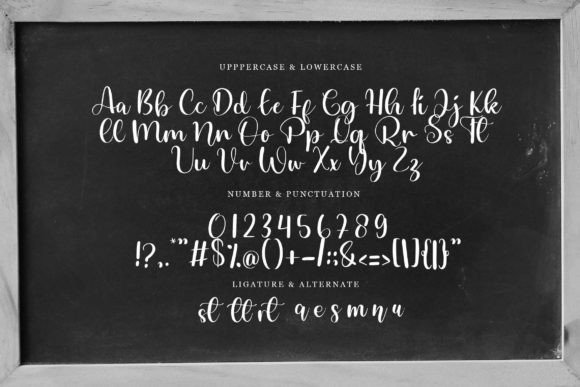 UPPPERCASE & LOWERCASE
Aa Bb Cc Dd Ee Ff Gg Hh Ii Jj Kk
Ll Mm Nn Oo Pp Qq Rr Ss Tt
Uu Vv Ww Xx Yy Zz
NUMBER & PUNCTUATION
0123456789
!?,.*"#$%@()+-/:;&<=>[\]{|}"
LIGATURE & ALTERNATE
st tt rt a e s m n u